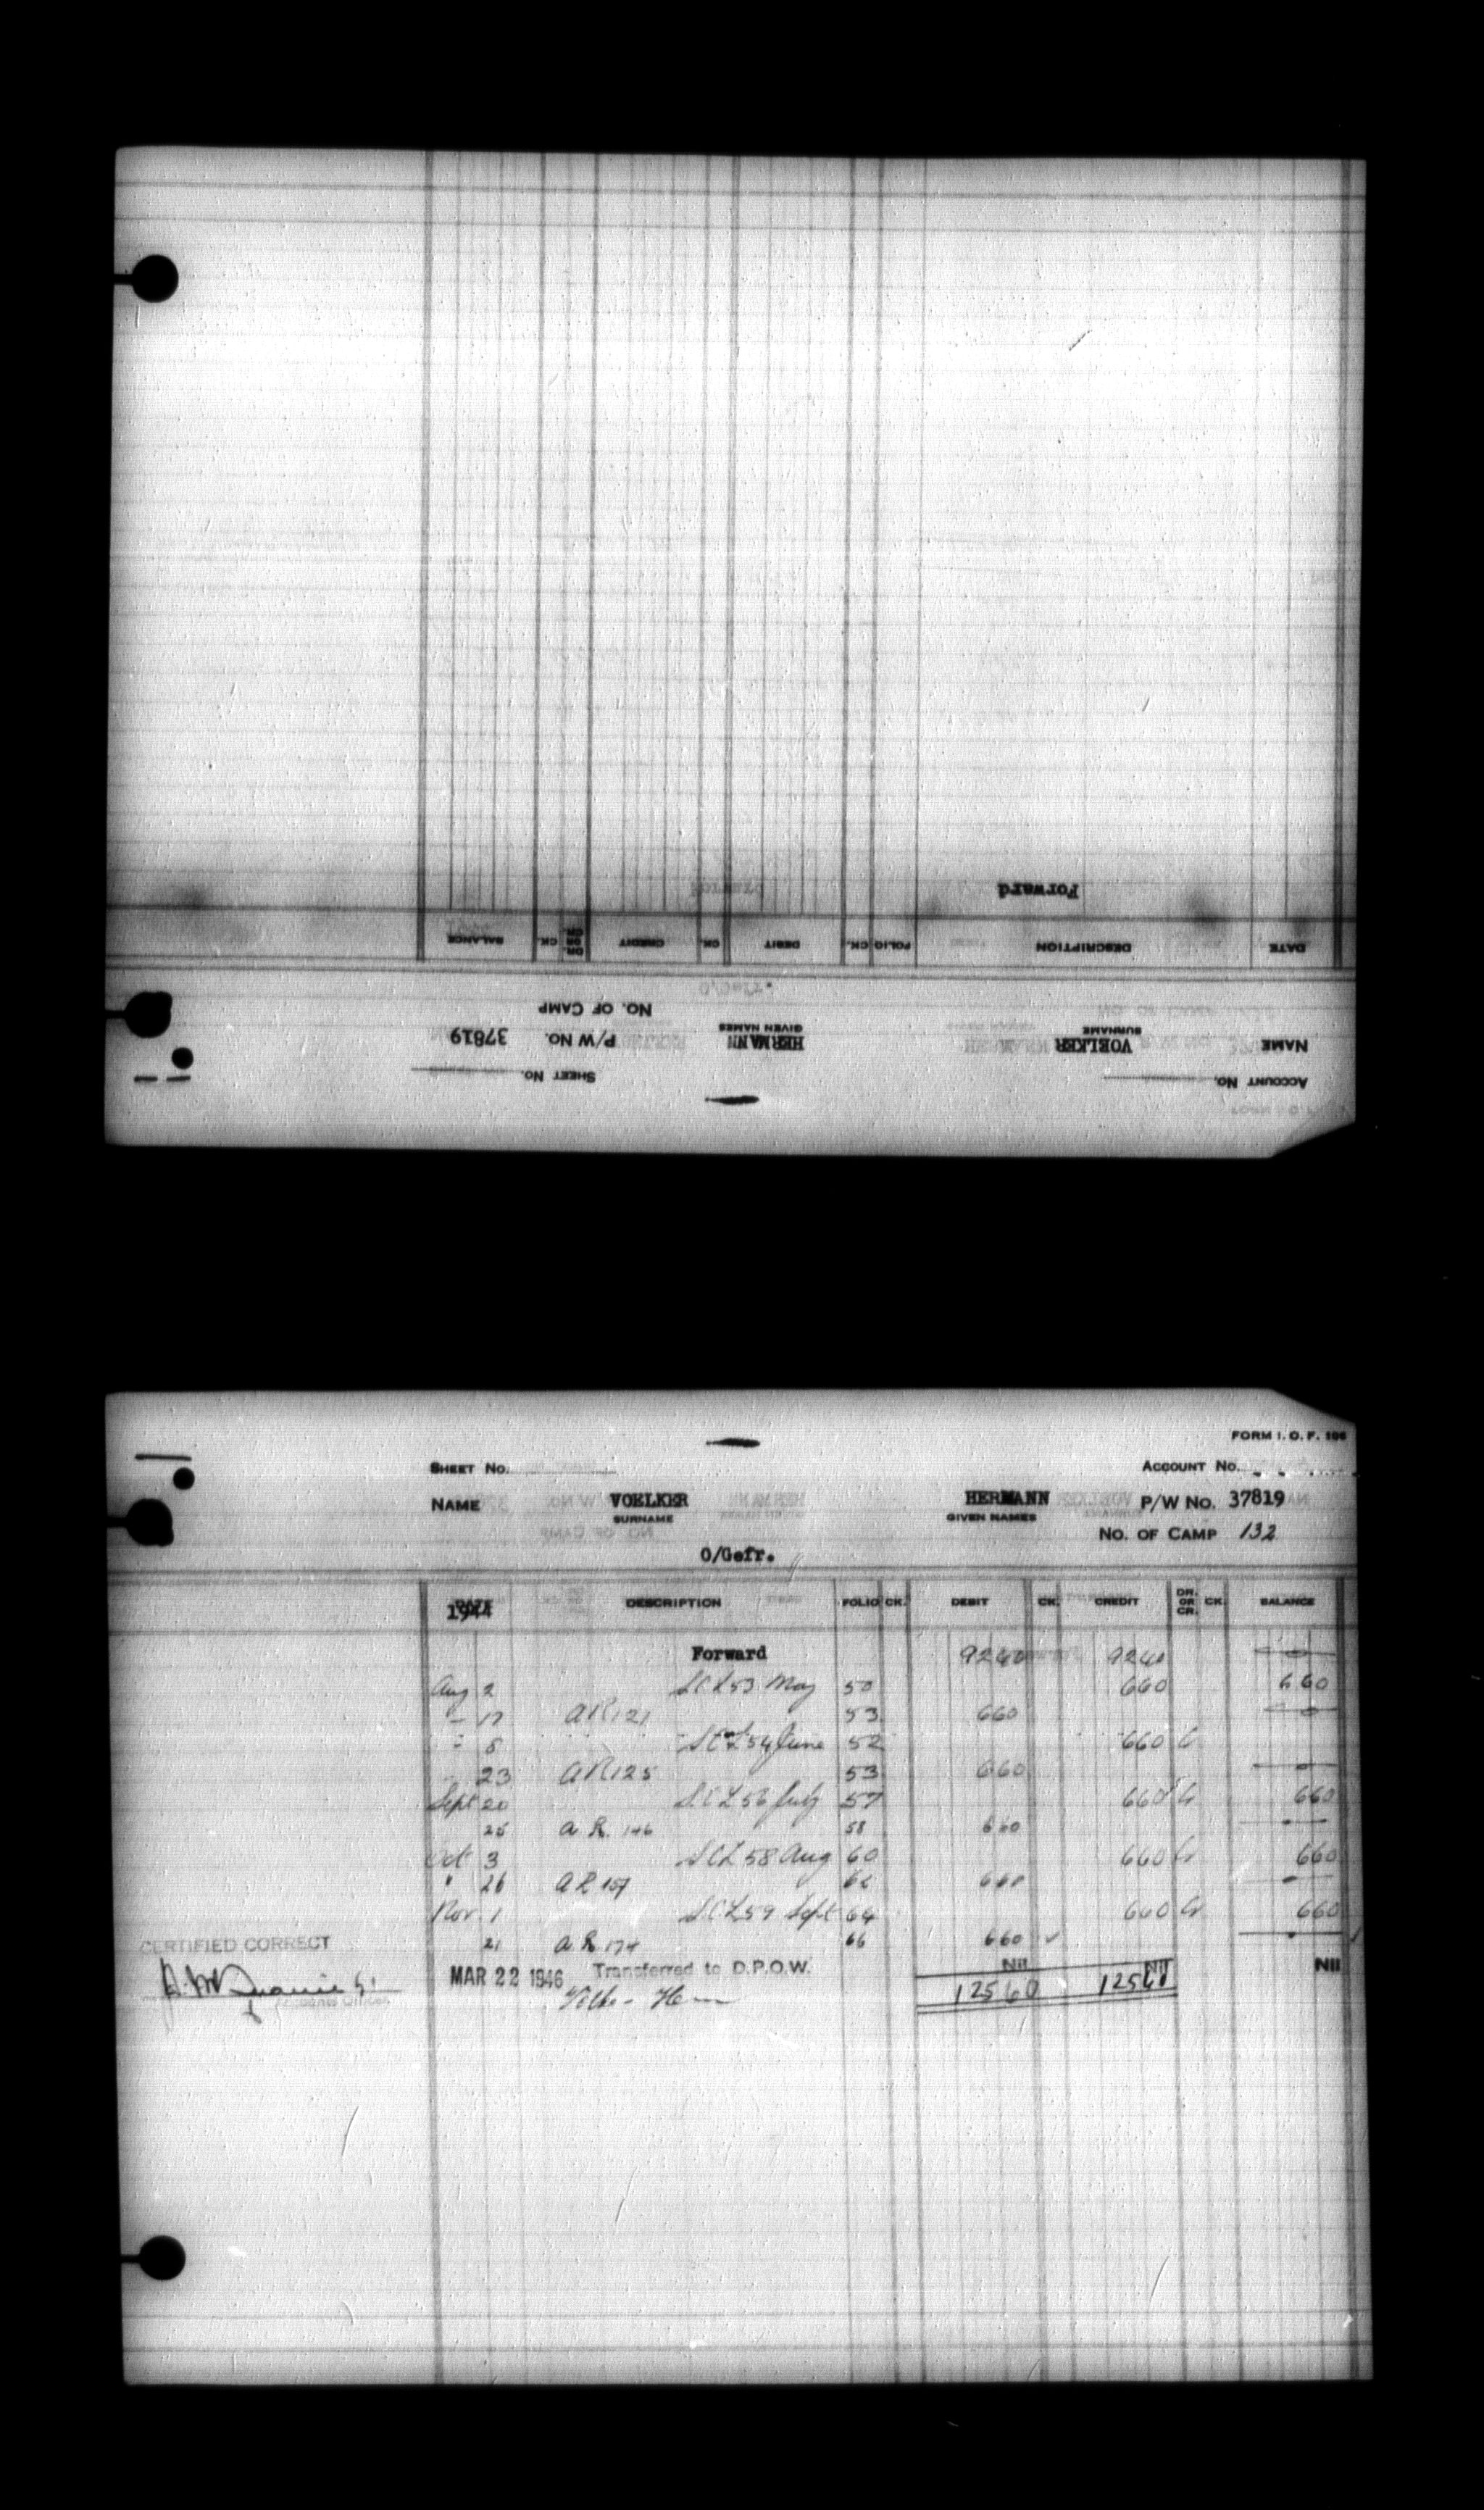 Forward
DATE DESCRIPTION FOLIO CK. DEBIT CK. CREDIT DR. OR CR. CK. BALANCE
NO. OF CAMP
NAME VOELKER SURNAME HERMANN GIVEN NAMES P/W NO. 37819
ACCOUNT NO. SHEET NO.
FORM I. O. F. 106
SHEET NO. ACCOUNT NO.
NAME VOELKER HERMANN P/W NO. 37819
SURNAME GIVEN NAMES
NO. OF CAMP 132
O/Gefr.
DATE DESCRIPTION FOLIO CK. DEBIT CK. CREDIT DR. OR CR. CK. BALANCE
1944
Forward 9240 9240
Aug 2 S.C.L 53 May 50 660 660
17 AR 121 53 660
8 S.C.L 54 June 52 660 Cr
23 AR 125 53 660
Sept 20 S.C.L 56 July 57 660 Cr 660
25 A.R. 146 58 660
Oct 3 S.C.L 58 Aug 60 660 Cr 660
" 26 A R 157 62 660
Nov. 1 S.C.L 59 Sept 64 660 Cr 660
21 A.R. 174 66 660 ✓
CERTIFIED CORRECT
MAR 22 1946 Transferred to D.P.O.W. Nil Nil Nil
12560 12560